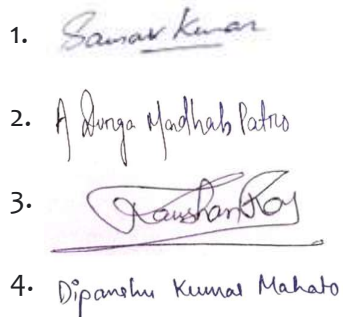 1. Saurav Kumar
2. A Durga Madhab Patro
3. Raushan Roy
4. Dipanshu Kumar Mahato